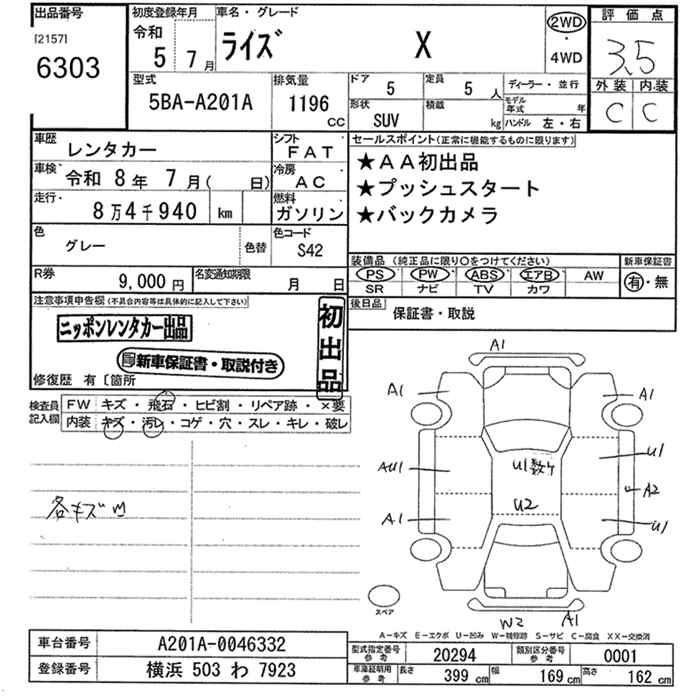 出品番号
[2157]
6303
初度登録年月
令和
5 7月
車名・グレード
ライズ X
2WD
・
4WD
評価点
3.5
外装 内装
C C
型式
5BA-A201A
排気量
1196
CC
ドア
5
定員
5 人
形状
SUV
積載
kg
ディーラー・並行
モデル年式 年
ハンドル 左・右
車歴
レンタカー
シフト
FAT
車検
令和 8年 7月( 日)
冷房
AC
走行
8万4千940 km
燃料
ガソリン
色
グレー
色替
色コード
S42
R券
9,000円
名変通知期限
月 日
セールスポイント(正常に機能するものに限ります)
★AA初出品
★プッシュスタート
★バックカメラ
装備品 (純正品に限り○をつけてください)
PS PW ABS エアB AW
SR ナビ TV カワ
新車保証書
有・無
後日品
保証書・取説
注意事項申告欄(不具合内容等は具体的に記入して下さい)
ニッポンレンタカー出品
新車保証書・取説付き
初出品
修復歴 有〔箇所
検査員記入欄
FW キズ・飛石・ヒビ割・リペア跡・×要
内装 キズ・汚レ・コゲ・穴・スレ・キレ・破レ
各キズ
A1
A1
A1
U1数ヶ
U2
AU1
A1
U1
A2
U1
W2
A1
スペア
A-キズ E-エクボ U-凹み W-補修跡 S-サビ C-腐食 XX-交換済
車台番号
A201A-0046332
登録番号
横浜 503 わ 7923
型式指定番号
参考
20294
類別区分番号
参考
0001
車庫証明用
参考
長さ
399 cm
幅
169 cm
高さ
162 cm